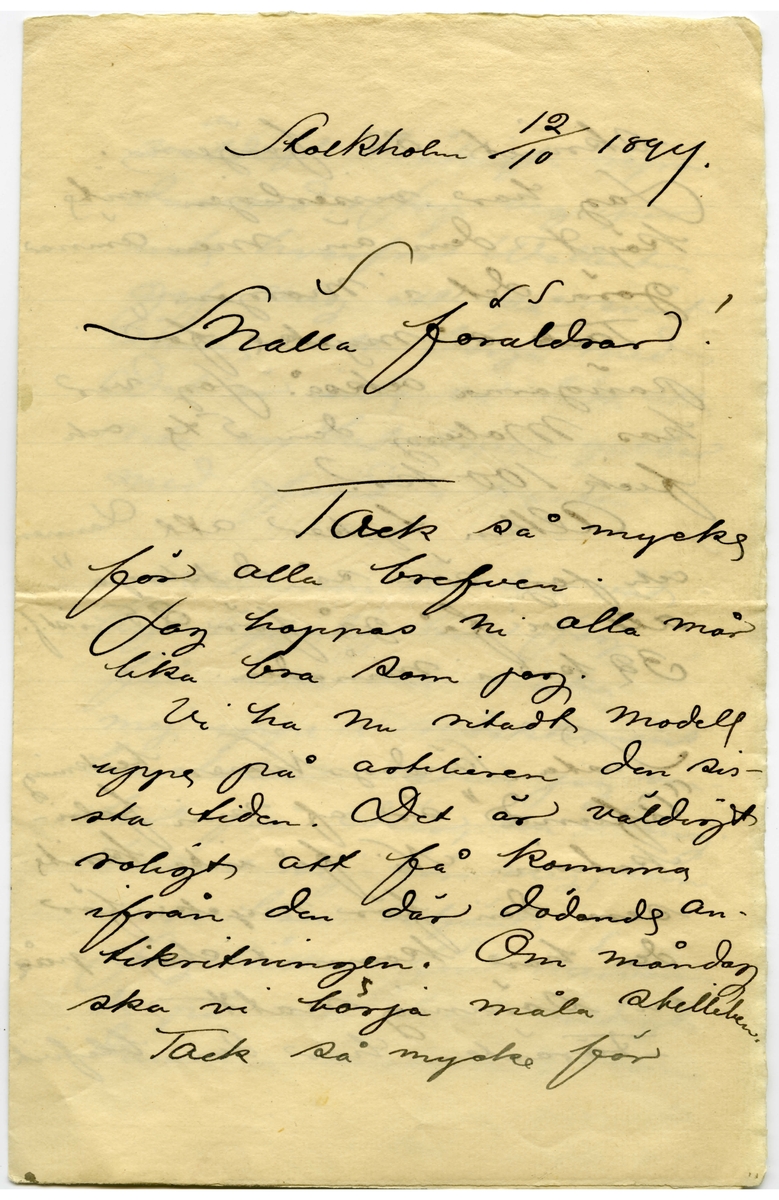 Stockholm 12/10 1897.
Snälla föräldrar!
Tack så mycke
för alla brefven.
Jag hoppas ni alla mår
lika bra som jag.
Vi ha nu ritadt modell
uppe på artelieren den sis-
sta tiden. Det är väldigt
roligt att få komma
ifrån den där dödande an-
tikritningen. Om måndag
ska vi börja måla stilleben.
Tack så mycke för